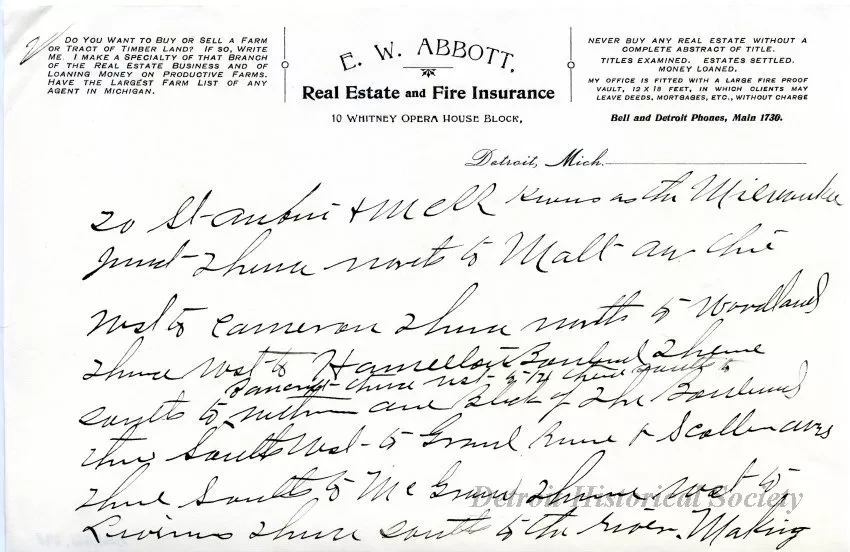 DO YOU WANT TO BUY OR SELL A FARM
OR TRACT OF TIMBER LAND? IF SO, WRITE
ME. I MAKE A SPECIALTY OF THAT BRANCH
OF THE REAL ESTATE BUSINESS AND OF
LOANING MONEY ON PRODUCTIVE FARMS.
HAVE THE LARGEST FARM LIST OF ANY
AGENT IN MICHIGAN.
E. W. ABBOTT,
Real Estate and Fire Insurance
10 WHITNEY OPERA HOUSE BLOCK,
NEVER BUY ANY REAL ESTATE WITHOUT A
COMPLETE ABSTRACT OF TITLE.
TITLES EXAMINED. ESTATES SETTLED.
MONEY LOANED.
MY OFFICE IS FITTED WITH A LARGE FIRE PROOF
VAULT, 12 X 18 FEET, IN WHICH CLIENTS MAY
LEAVE DEEDS, MORTGAGES, ETC., WITHOUT CHARGE
Bell and Detroit Phones, Main 1730.
Detroit, Mich.
to St Aubin + M C R R known as the Milwaukee
junct thence north to Malt
West to Cameron thence north to Woodland
thence West to Boulevard thence
Bancroft thence west to thence south to
south to one block of The Boulevard
South West to Grand + Scotten
south to McGraw thence west to
thence south to the river. Making
Detroit Historical Society